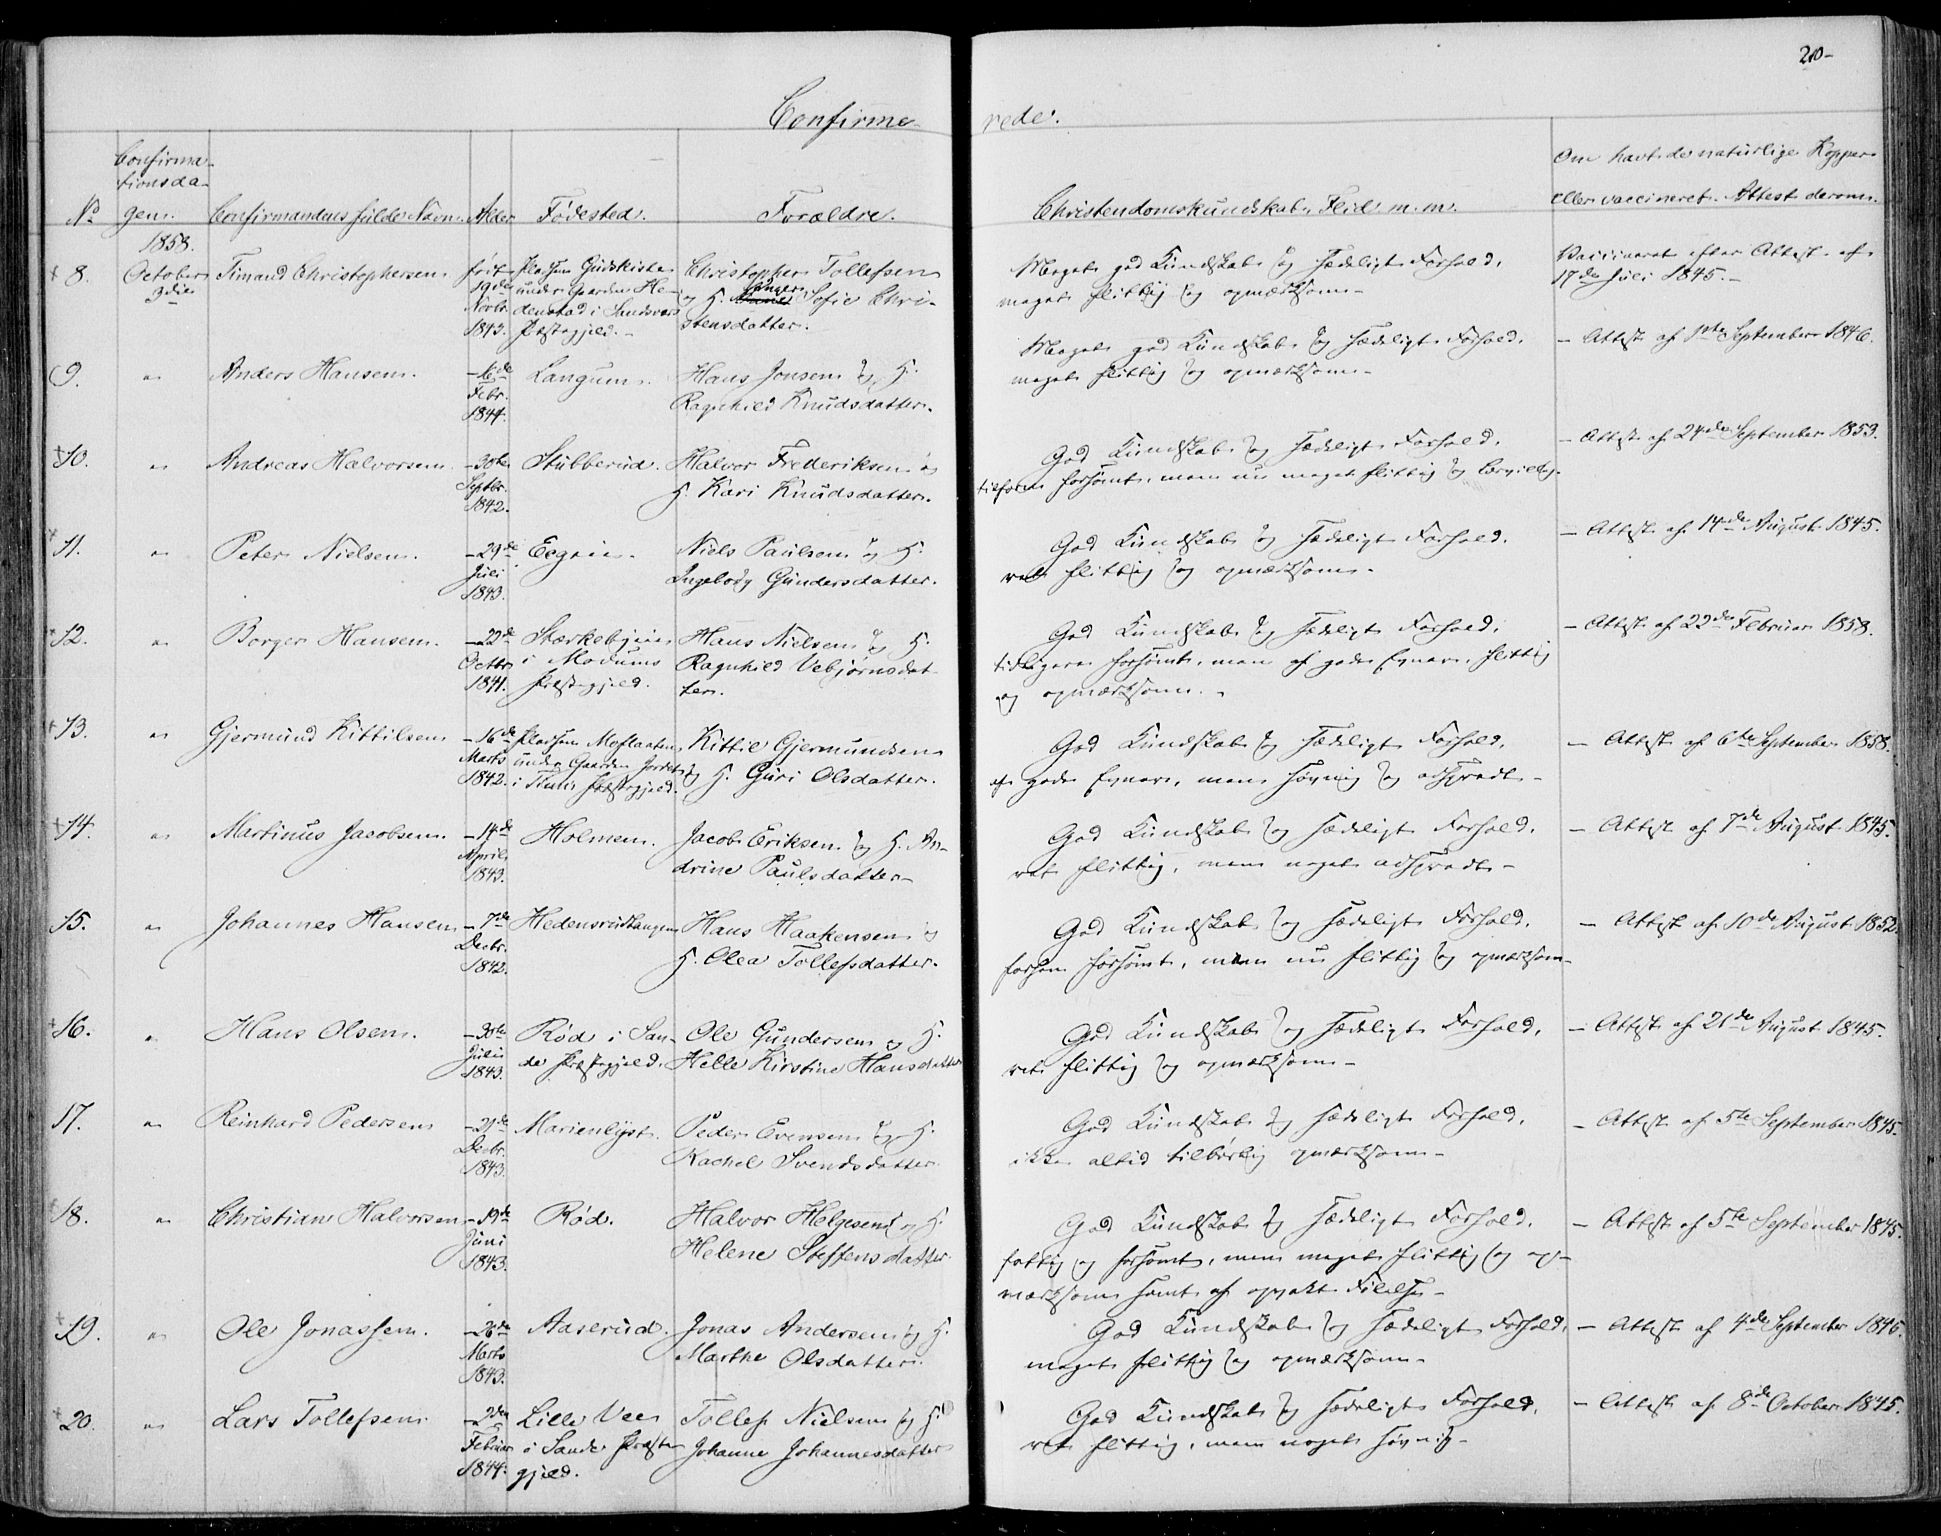 210-
Confirme-
rede.
Confirma-
tionsda-
No gen. Confirmandens fulde Navn. Alder Fødested. Forældre. Christendomskundskab, Flid m.m. Om havt de naturlige Kopper
eller vaccineret. Attest derom.
1858.
8. October Timand Christophersen født Pladsen Gudskiste Christopher Tollefsen Meget god Kundskab og sædeligt Forhold, Vaccineret efter Attest af
9de 19de under Gaarden He- og H. Sofie Chri- meget flittig og opmærksom- 17de Juli 1845.-
Novbr. denstad i Sandsværs stensdatter.
1843. Præstegjeld.-
9. " Anders Hansen. -16de Langum. Hans Jonsen og H. Meget god Kundskab og sædeligt Forhold, - Attest af 1ste September 1846.
Febr. Ragnhild Knudsdatter. meget flittig og opmærksom-
1844.
10. " Andreas Halvorsen -30te Stubberud. Halvor Frederiksen og God Kundskab og sædeligt Forhold, - Attest af 24de September 1853.
Septbr. H. Kari Knudsdatter. tilforn forsømt, men nu meget flittig og lærvillig.
1842.
11. " Peter Nielsen. -29de Niels Paulsen og H. God Kundskab og sædeligt Forhold, - Attest af 14de August 1845.
Juli Ingeborg Gundersdatter. ret flittig og opmærksom-
1843.
12. " Borger Hansen. -22de Stærkebye Hans Nielsen og H. God Kundskab og sædeligt Forhold, - Attest af 22de Februar 1858.
Octbr. i Modums Ragnhild Vebjørnsdat- tidligere forsømt, men af gode Evner, flittig
1841. Præstegjeld. ter. og opmærksom.-
13. " Gjermund Kittilsen -16de Pladsen Moflaaten Kittil Gjermundsen God Kundskab og sædeligt Forhold, - Attest af 6te September 1858.
Marts under Gaarden Jordet og H. Guri Olsdatter. af gode Evner, men søvnig og adspredt-
1842. i Præstegjeld.
14. " Martinus Jacobsen. -14de Holmen. Jacob Eriksen og H. An- God Kundskab og sædeligt Forhold, - Attest af 7de August 1845.
April drine Paulsdatter- ret flittig, men noget adspredt-
1843.
15. " Johannes Hansen -7de Hedensrudtangen Hans Haakensen og God Kundskab og sædeligt Forhold, - Attest af 10de August 1852.
Decbr. H. Olea Tollefsdatter. forhen forsømt, men nu flittig og opmærksom-
1842.
16. " Hans Olsen. -30te Rød i San- Ole Gundersen og H. God Kundskab og sædeligt Forhold, - Attest af 21de August 1845.
Juli de Præstegjeld. Helle Kirstine Hansdatter ret flittig og opmærksom-
1843.
17. " Reinhard Pedersen -21de Marienlyst. Peder Evensen og H. God Kundskab og sædeligt Forhold, - Attest af 5te September 1845.
Decbr. Rachel Svendsdatter. ikke altid tilbørlig opmærksom-
1843.
18. " Christian Halvorsen -19de Rød. Halvor Helgesen og H. God Kundskab og sædeligt Forhold, - Attest af 5te September 1845.
Juni Helene Steffensdatter fattig og forsømt, men meget flittig og op-
1843. mærksom samt af opvakt Følelse-
19. " Ole Jonassen. -26de Aaserud. Jonas Andersen og H. God Kundskab og sædeligt Forhold, - Attest af 4de September 1846.
Marts Marthe Olsdatter. meget flittig og opmærksom-
1843.
20. " Lars Tollefsen. -2den Lille Vee Tollef Nielsen og H. God Kundskab og sædeligt Forhold, - Attest af 8de October 1845.
Februar i Sande Præste- Johanne Johannesdatter ret flittig, men noget søvnig-
1844. gjeld.